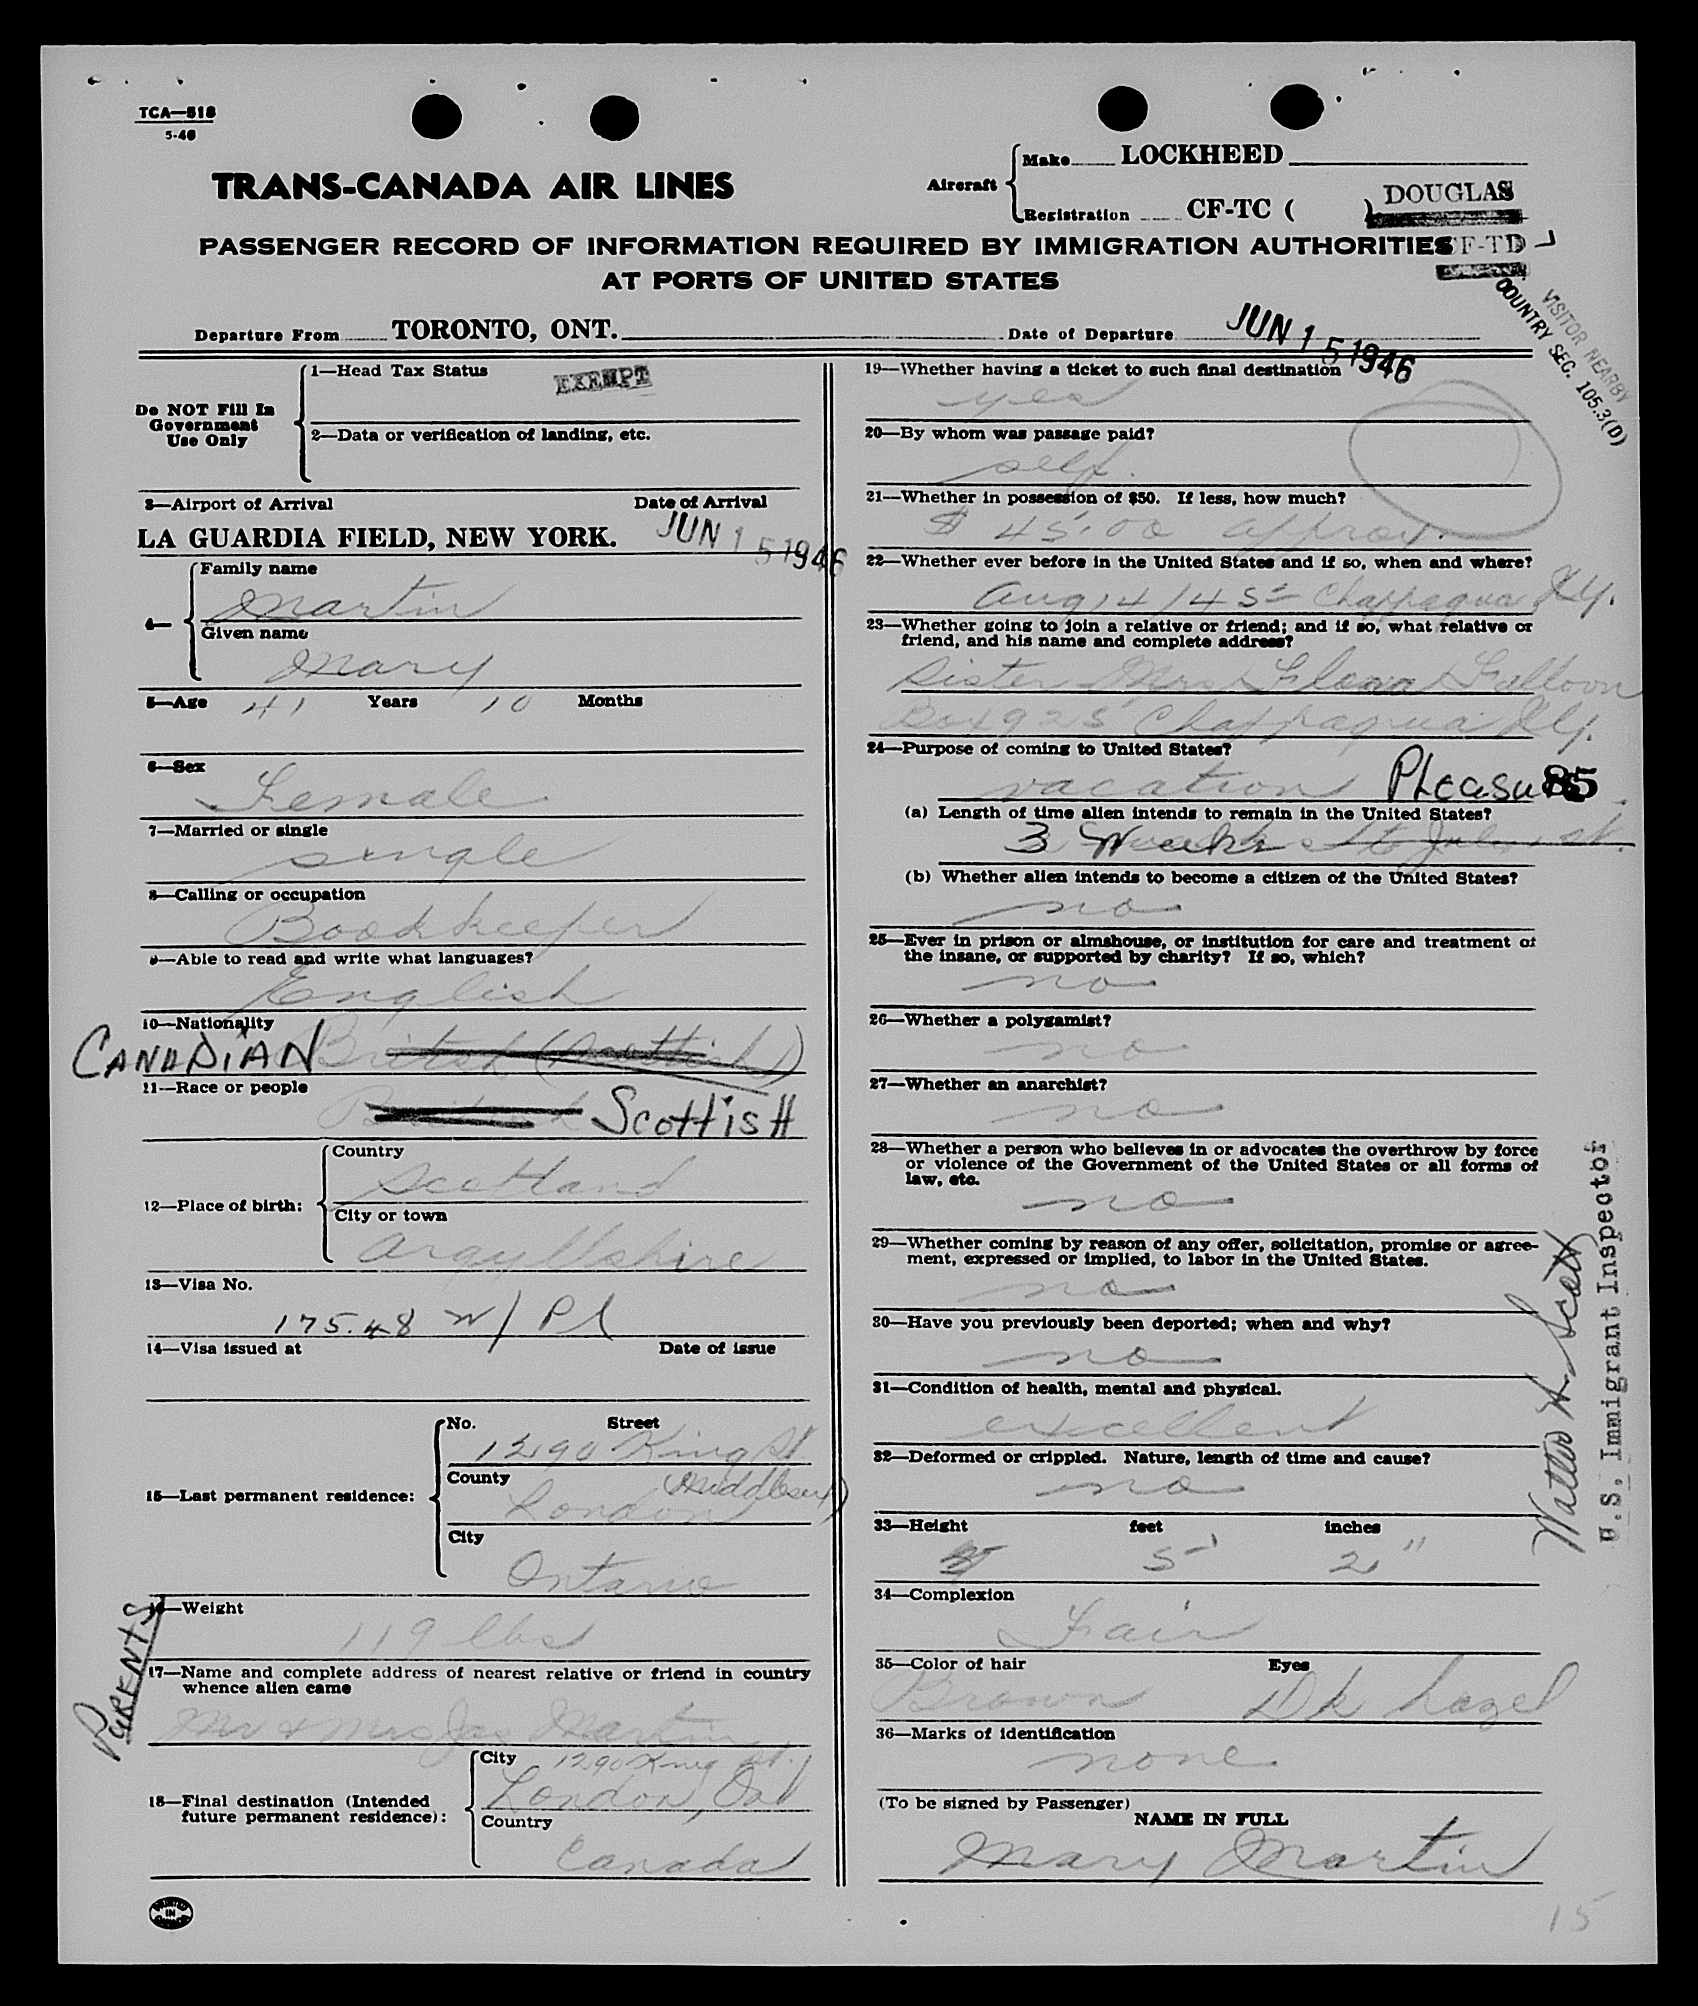 TCA—518
5-46
TRANS-CANADA AIR LINES
Aircraft
Make LOCKHEED
Registration CF-TC ( )
DOUGLAS
CF-TD
PASSENGER RECORD OF INFORMATION REQUIRED BY IMMIGRATION AUTHORITIES
AT PORTS OF UNITED STATES
VISITOR NEARBY
COUNTRY SEC. 105.3(D)
Departure From TORONTO, ONT. Date of Departure JUN 15 1946
Do NOT Fill In
Government
Use Only
1—Head Tax Status EXEMPT
2—Data or verification of landing, etc.
3—Airport of Arrival Date of Arrival
LA GUARDIA FIELD, NEW YORK. JUN 15 1946
4—
Family name
Martin
Given name
Mary
5—Age 41 Years 10 Months
6—Sex
Female
7—Married or single
single
8—Calling or occupation
Bookkeeper
9—Able to read and write what languages?
English
10—Nationality
CANADIAN British (Scottish)
11—Race or people
British SCOTTISH
12—Place of birth:
Country
Scotland
City or town
Argyllshire
13—Visa No.
175.48 w/ Pl
14—Visa issued at Date of issue
15—Last permanent residence:
No. Street
1290 King St
County
London (Middlesex)
City
Ontario
16—Weight
119 lbs
PARENTS
17—Name and complete address of nearest relative or friend in country
whence alien came
Mr & Mrs Jas Martin
1290 King St.
18—Final destination (Intended
future permanent residence):
City
London, Ont
Country
Canada
PRINTED IN CANADA
19—Whether having a ticket to such final destination
yes
20—By whom was passage paid?
self.
21—Whether in possession of $50. If less, how much?
$ 45.00 approx.
22—Whether ever before in the United States and if so, when and where?
Aug 14/45 Chappaqua N.Y.
23—Whether going to join a relative or friend; and if so, what relative or
friend, and his name and complete address?
Sister Mrs Flora
Box 925 Chappaqua N.Y.
24—Purpose of coming to United States?
vacation Pleasure 85
(a) Length of time alien intends to remain in the United States?
3 Weeks to July 1st.
(b) Whether alien intends to become a citizen of the United States?
no
25—Ever in prison or almshouse, or institution for care and treatment of
the insane, or supported by charity? If so, which?
no
26—Whether a polygamist?
no
27—Whether an anarchist?
no
28—Whether a person who believes in or advocates the overthrow by force
or violence of the Government of the United States or all forms of
law, etc.
no
29—Whether coming by reason of any offer, solicitation, promise or agree-
ment, expressed or implied, to labor in the United States.
no
30—Have you previously been deported; when and why?
no
31—Condition of health, mental and physical.
excellent
32—Deformed or crippled. Nature, length of time and cause?
no
33—Height feet inches
5' 2"
34—Complexion
Fair
35—Color of hair Eyes
Brown Dk hazel
36—Marks of identification
none
(To be signed by Passenger)
NAME IN FULL
Mary Martin
Walter H. Scott
U.S. Immigrant Inspector
15